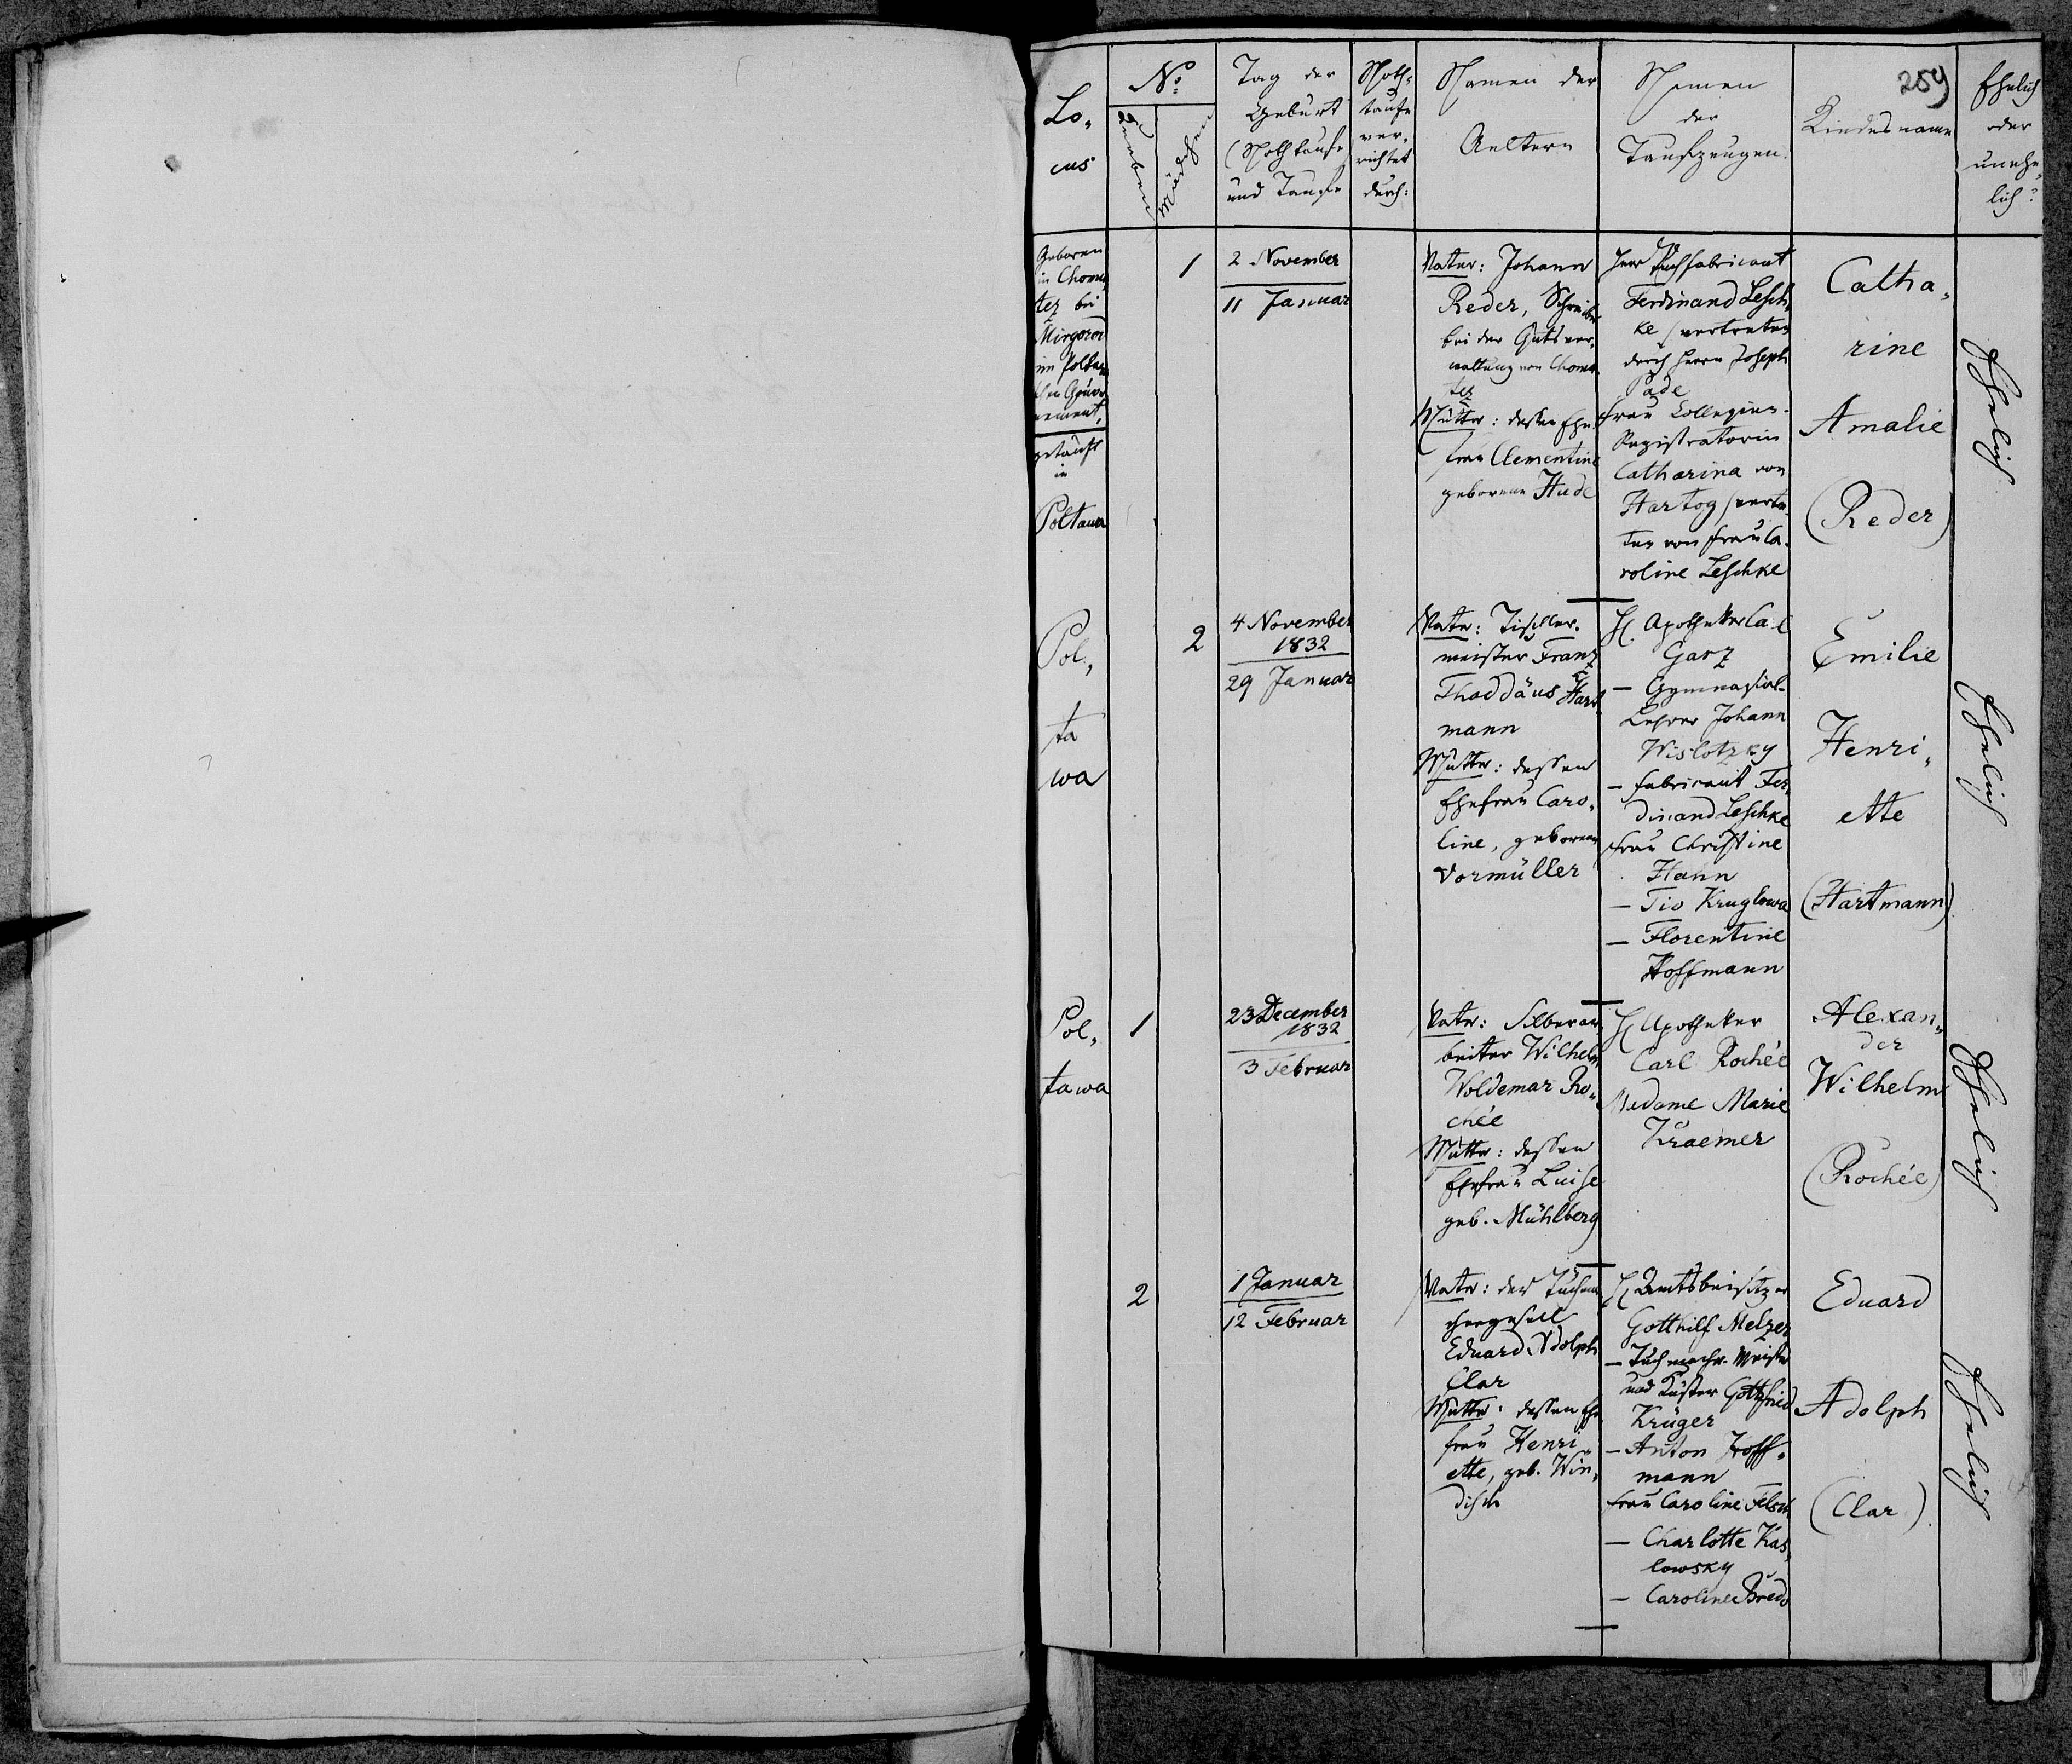 259
Lo-
cus
No:
Knaben
Mädchen
Tag der
Geburt
(Nothtaufe
und Taufe
Noth-
taufe
ver-
richtet
durch:
Namen der
Aeltern
Namen
der
Taufzeugen.
Kindesname
Ehelich
oder
unehe-
lich?
Geboren
in Chomu
tez bei
Mirgorod
im Poltaw
schen Gouver
nement,
getauft
in
Poltawa
1
2 November
11 Januar
Vater: Johann
Reder, Schreiber
bei der Gutsver-
waltung von Chomu
tez
Mutter: dessen Ehe-
frau Clementine
geborene Hude
Herr Tuchfabricant
Ferdinand Lesch-
ke (vertreten
durch Herrn Joseph
Pade
Frau Collegien-
Registratorin
Catharina von
Hartog (vertre-
ten von Frau Ca-
roline Leschke
Catha-
rine
Amalie
(Reder)
Ehelich
Pol-
ta
wa
2
4 November
1832
29 Januar
Vater: Tischler-
meister Franz
Thaddäus Hart-
mann
Mutter: dessen
Ehefrau Caro-
line, geborene
Vormüller
H. Apotheker Carl
Garz
- Gymnasial-
Lehrer Johann
Wislotzky
- Fabricant Fer-
dinand Leschke
Frau Christine
Hahn
- Tio Kruglowa
- Florentine
Hoffmann
Emilie
Henri-
ette
(Hartmann)
Ehelich
Pol-
tawa
1
23 December
1832
3 Februar
Vater: Silberar-
beiter Wilhelm
Woldemar Ro-
chée
Mutter: dessen
Ehefrau Luise
geb. Mühlberg
H. Apotheker
Carl Rochée
Madame Marie
Kraemer
Alexan-
der
Wilhelm
(Rochée)
Ehelich
2
1 Januar
12 Februar
Vater: der Tuchma
chergesell
Eduard Adolph
Clar
Mutter: dessen Ehe
frau Henri-
ette, geb. Win-
disch
H. Amtsbeisitzer
Gotthilf Melzer
- Tuchmacher-Meister
und Küster Gottfried
Krüger
- Anton Hoff-
mann
Frau Caroline Felsch
- Charlotte Kas-
lowsky
- Caroline Bredo
Eduard
Adolph
(Clar).
Ehelich